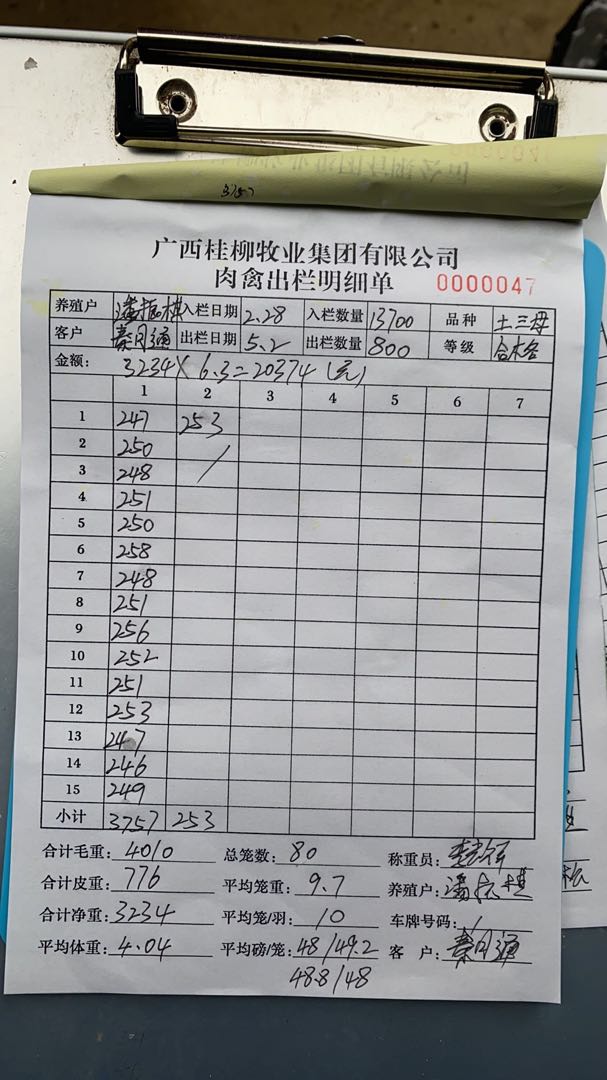 3757
广西桂柳牧业集团有限公司
肉禽出栏明细单 0000047
养殖户 潘振棋 入栏日期 2.28 入栏数量 13700 品种 土三母
客户 秦月通 出栏日期 5.2 出栏数量 800 等级 合格
金额: 3234×6.3=20374(元)
1 2 3 4 5 6 7
1 247 253
2 250 /
3 248
4 251
5 250
6 258
7 248
8 251
9 256
10 252
11 251
12 253
13 247
14 246
15 249
小计 3757 253
合计毛重: 4010 总笼数: 80 称重员:
合计皮重: 776 平均笼重: 9.7 养殖户: 潘振棋
合计净重: 3234 平均笼/羽: 10 车牌号码: /
平均体重: 4.04 平均磅/笼: 48/49.2 客 户: 秦月通
48.8/48